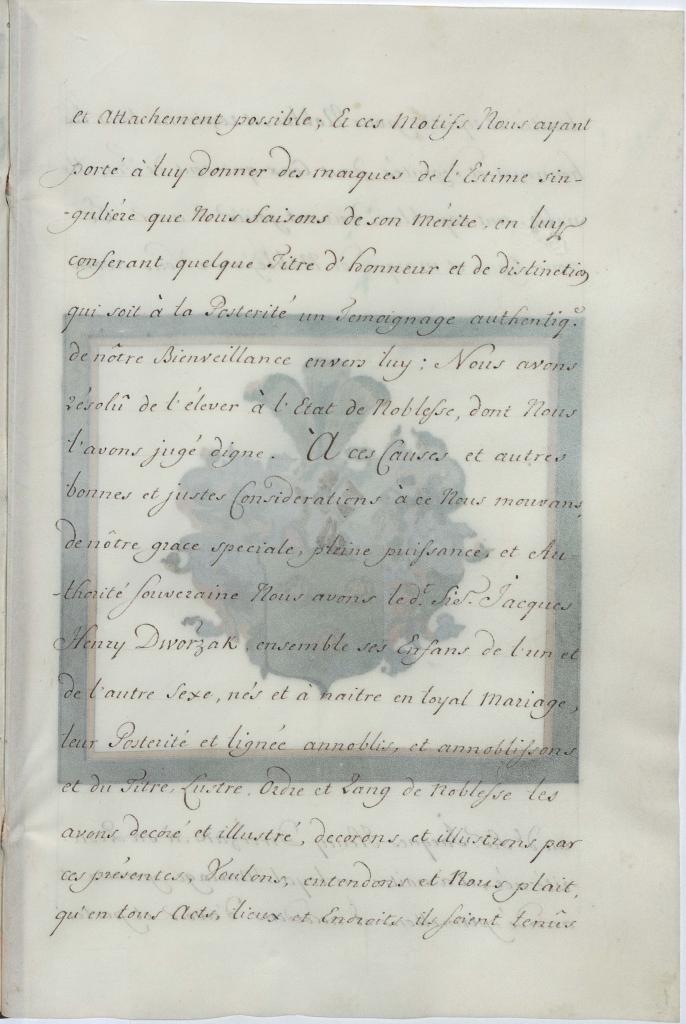 et Attachement possible; Et ces Motifs Nous ayant
porté à luy donner des marques de l'Estime sin-
-guliére que Nous faisons de son Mérite, en luy
conferant quelque Titre d'honneur et de distinction
qui soit à la Posterité un Temoignage authentiq.e
de nôtre Bienveillance envers luy: Nous avons
résolû de l'élever à l'Etat de Noblesse, dont Nous
l'avons jugé digne. À ces Causes et autres
bonnes et justes Considerations à ce Nous mouvans,
de nôtre grace speciale, pleine puissance, et Au-
-thorité souveraine Nous avons led.t Sie.r Jacques
Henry Dworzak, ensemble ses Enfans de l'un et
de l'autre Sexe, nés et à naitre en loyal Mariage,
leur Posterité et lignée annoblis, et annoblissons
et du Titre, Lustre, Ordre et Rang de Noblesse les
avons decoré et illustré, decorons et illustrons par
ces présentes, Voulons, entendons et Nous plait,
qu'en tous Acts, lieux et Endroits ils soient tenûs